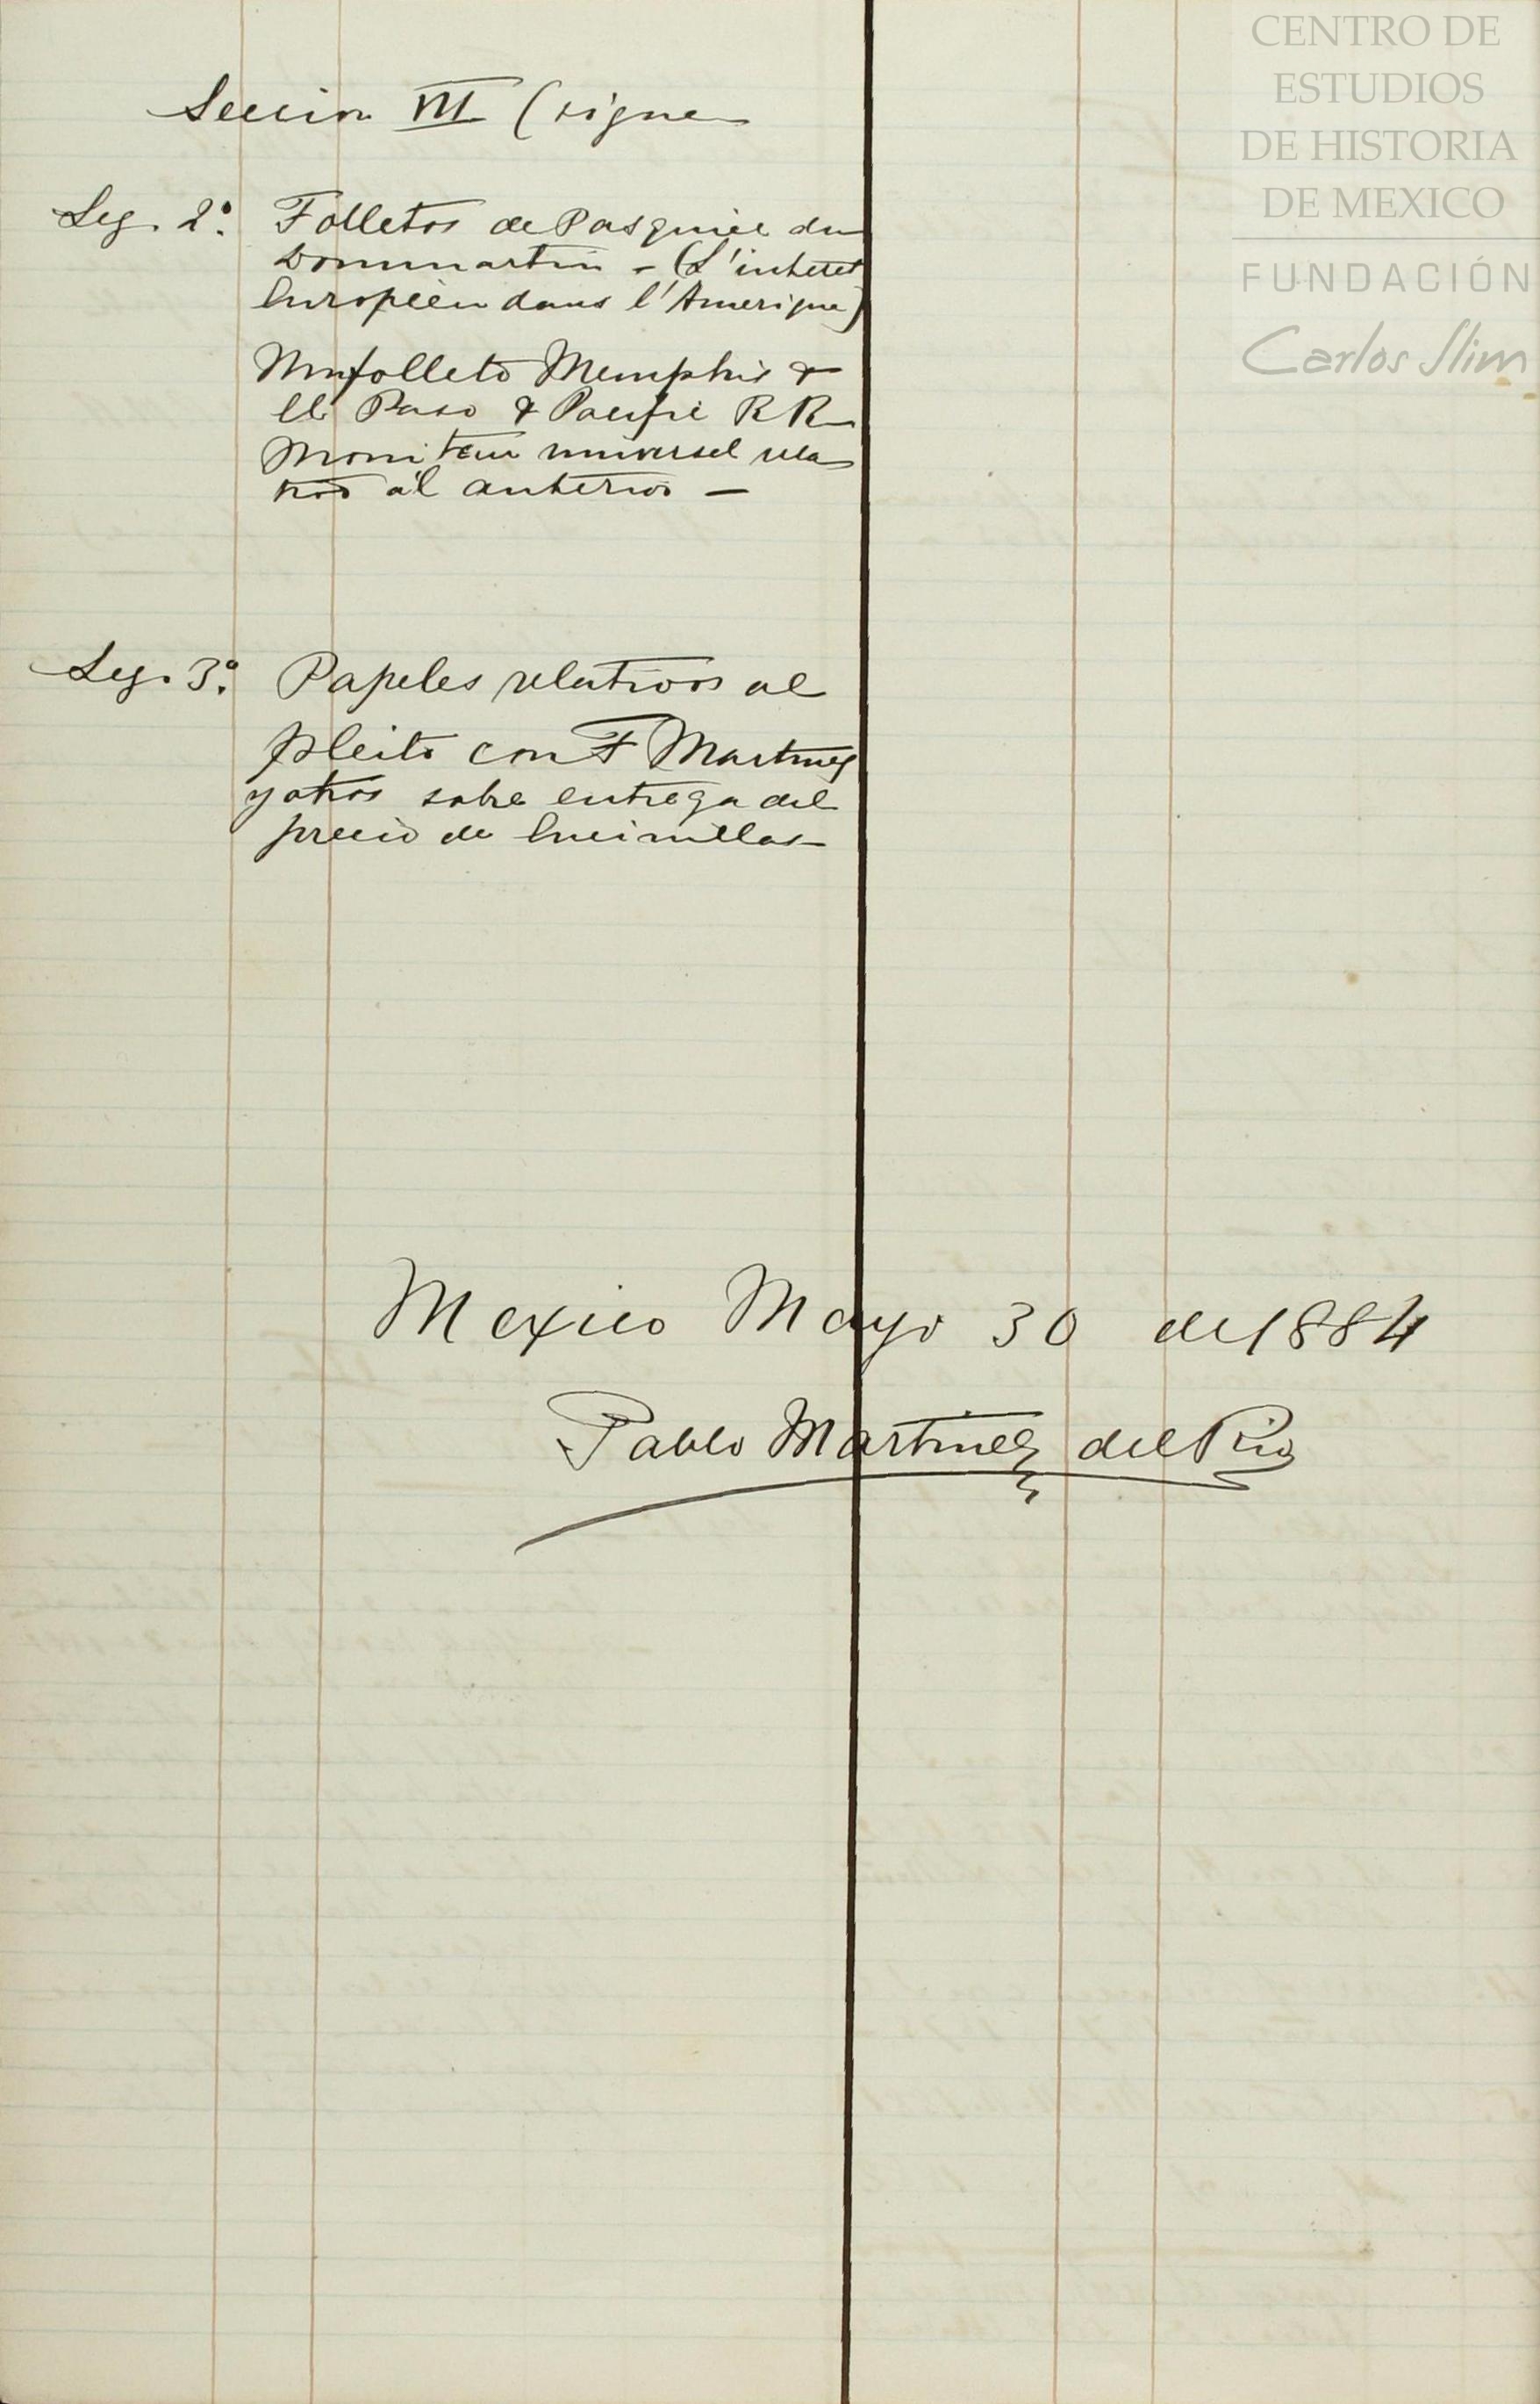 Seccion VII (sigue
Leg. 2º. Folletos de Pasquier du
Dommartin - (L'interet
Européen dans l'Amerique)
Un folleto Memphis &
El Paso & Pacific R R
Moniteur universel rela
tivo al anterior -
Leg. 3º. Papeles relativos al
pleito con F Martinez
y otros sobre entrega del
precio de Encinillas
Mexico Mayo 30 de 1884
Pablo Martinez del Rio
CENTRO DE
ESTUDIOS
DE HISTORIA
DE MEXICO
FUNDACIÓN
Carlos Slim